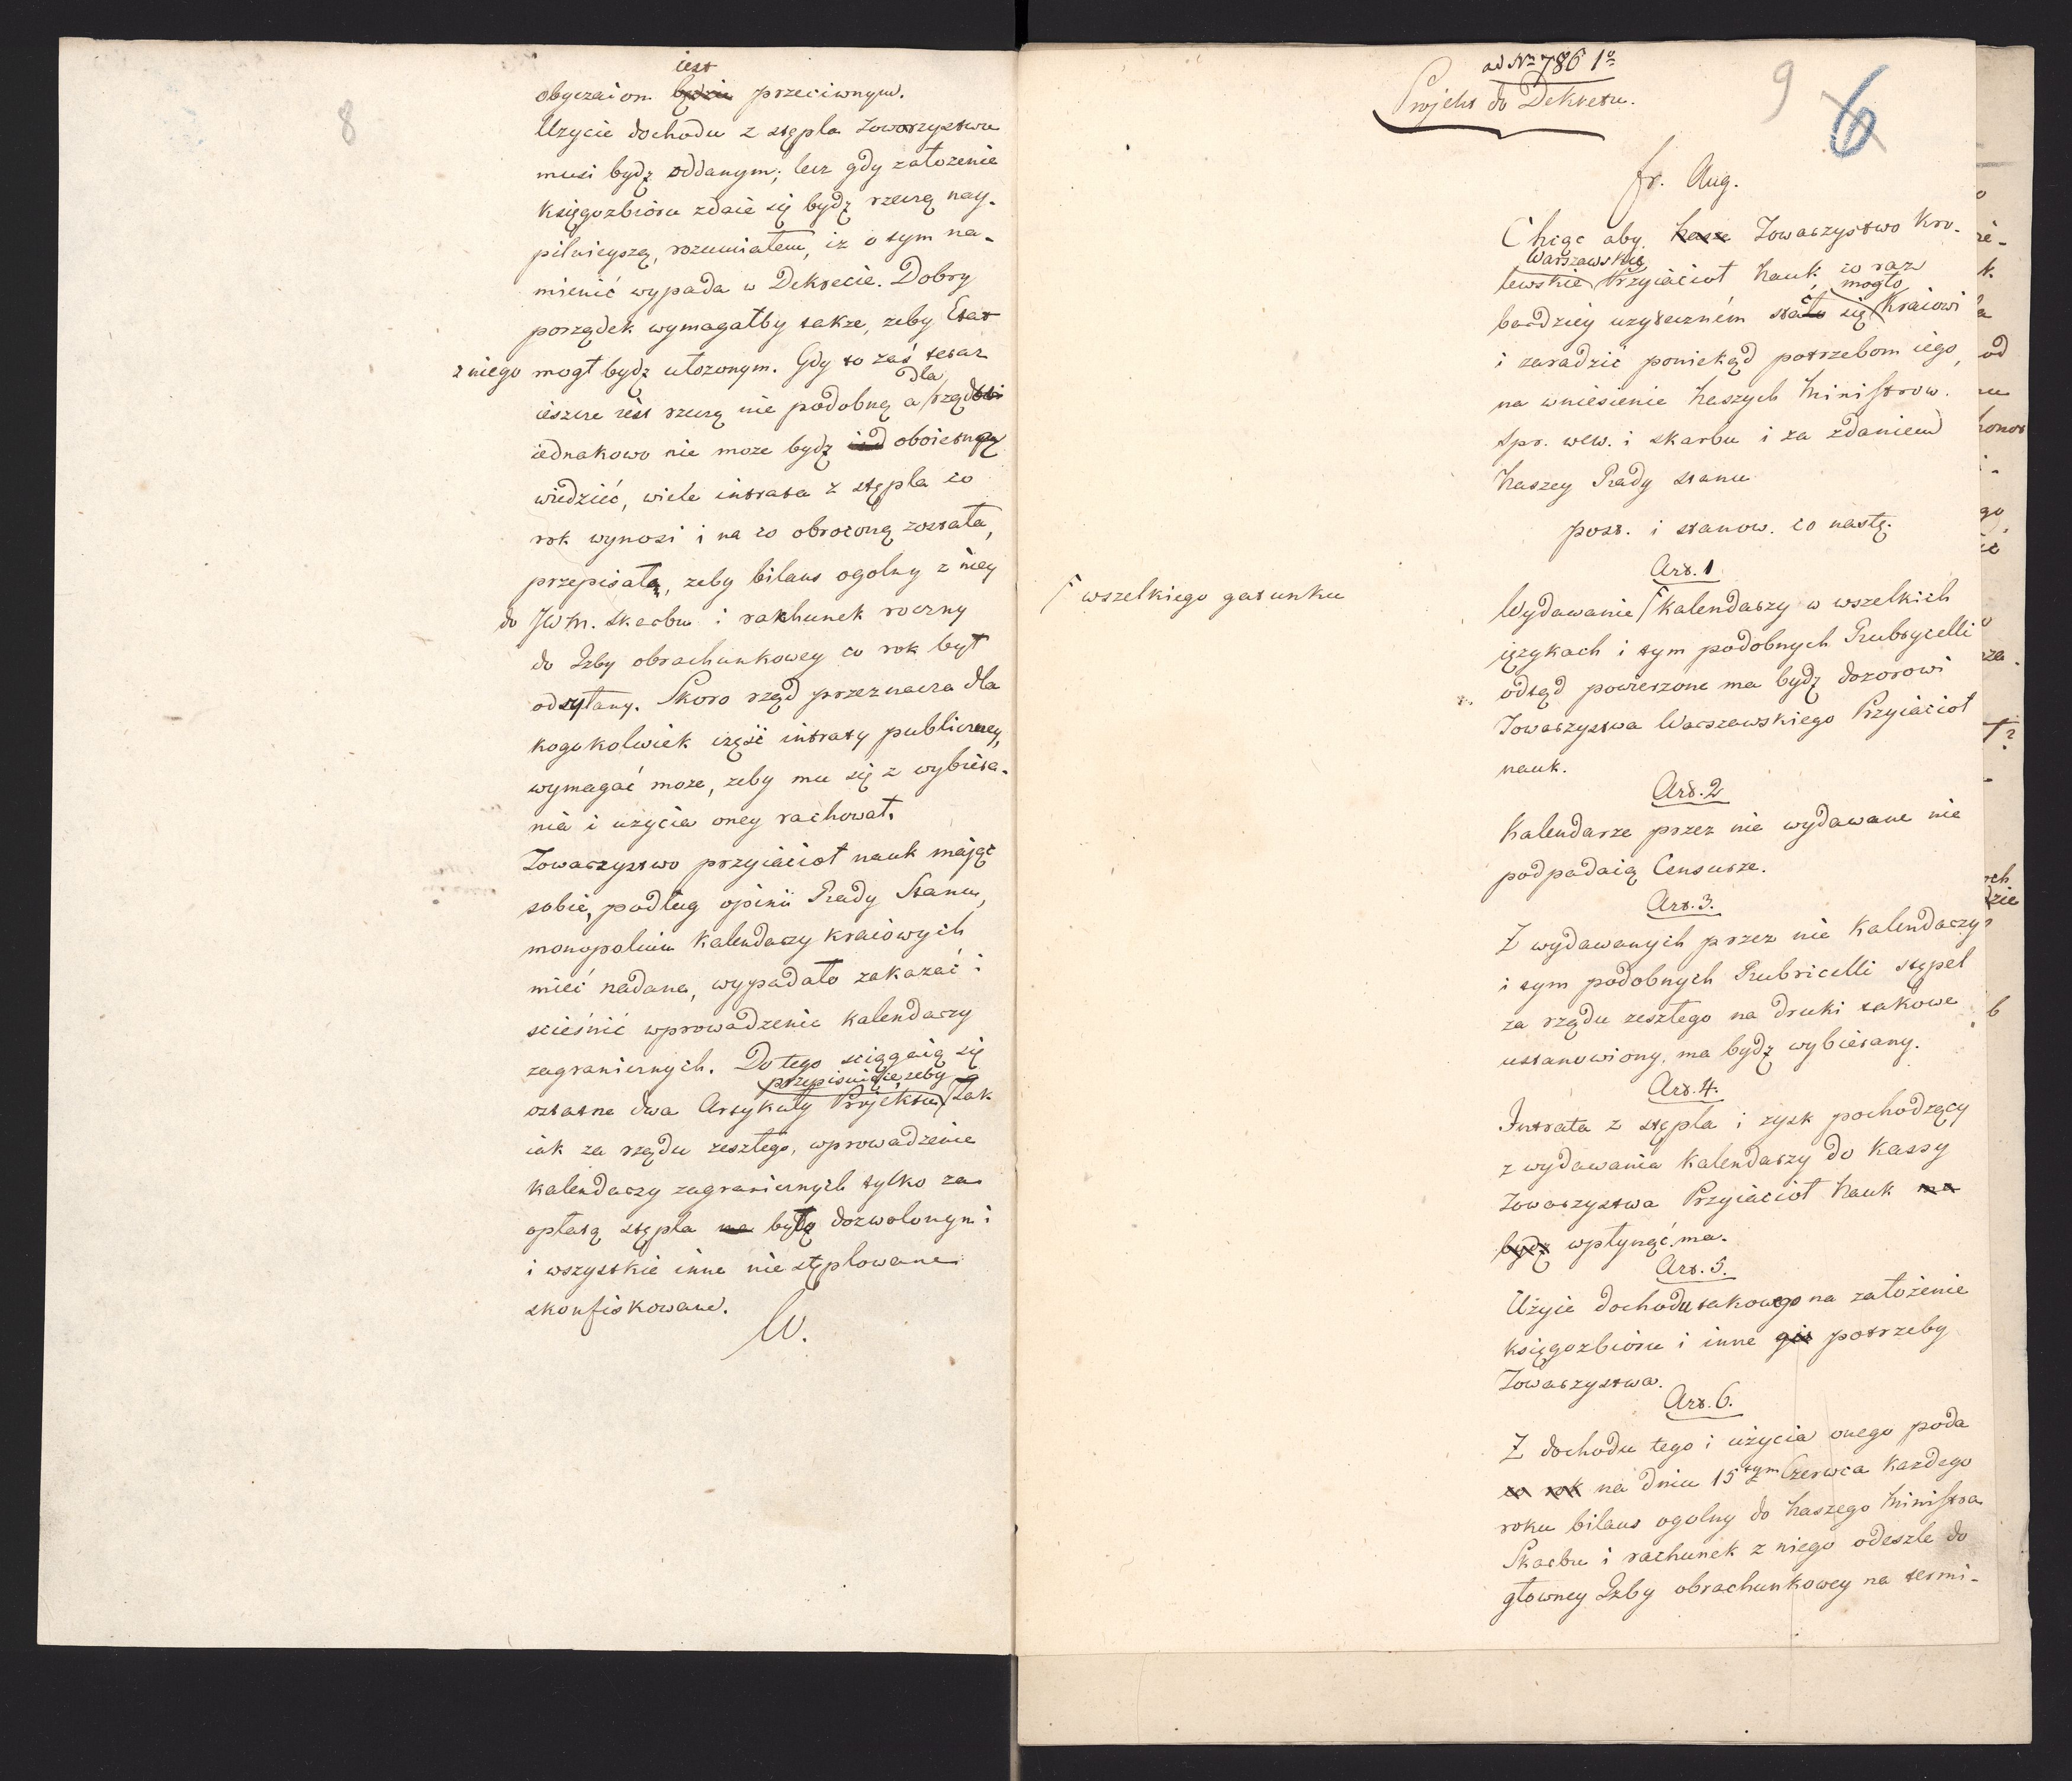 8
iest
obyczaiom będzie przeciwnym.
Uzycie dochodu z stępla Towarzystwu
musi bydz oddanym; lecz gdy załozenie
księgozbioru zdaie się bydz rzeczą nay-
pilnieyszą, rozumiałem, iz o tym na-
mienić wypada w Dekrecie. Dobry
porządek wymagałby takze, zeby Etat
z niego mogł bydz ułozonym. Gdy to zaś teraz
dla
ieszcze iest rzeczą nie podobną a rządowi
iednakowo nie moze bydz obojetną
wiedzieć, wiele intrata z stępla co
rok wynosi i na co obroconą została,
przepisałem, zeby bilans ogolny z niey
do JW M. Skarbu i rachunek roczny
do Izby obrachunkowey co rok był
odsyłany. Skoro rząd przeznacza dla
kogokolwiek część intraty publiczney,
wymagać moze, zeby mu się z wybiera-
nia i uzycia oney rachował.
Towarzystwo przyiacioł nauk mając
sobie, podług opinii Rady Stanu,
monopolium kalendarzy kraiowych
mieć nadane, wypadało zakazać i
scieśnić wprowadzenie kalendarzy
zagranicznych. Do tego sciągaią się
przepisuiące, zeby
ostatne dwa Artykuły Projektu Tak
iak za rządu zeszłego, wprowadzenie
kalendarzy zagranicznych tylko za
opłatą stępla na było dozwolonym i
i wszystkie inne nie stęplowane
skonfiskowane.
W.
ad Nr 786 1o
Projekt do Dekretu.
9
6
fr. Aug.
Chcąc aby Nasze Towarzystwo Kro-
Warszawskie
lewskie Przyiacioł Nauk, co raz
mogło
bardziey uzyteczném stać się Kraiowi
i zaradzić poniekąd potrzebom iego,
na wniesienie Naszych Ministrow.
Spr. wew. i skarbu i za zdaniem
Naszey Rady stanu
post. i stanow. co nastę.
Art. 1
Wydawanie kalendarzy w wszelkich
wszelkiego gatunku
ięzykach i tym podobnych Rubrycelli
odtąd powierzone ma bydz dozorowi
Towarzystwa Warszawskiego Przyiacioł
nauk.
Art. 2
Kalendarze przez nie wydawane nie
podpadaią Censurze.
Art. 3.
Z wydawanych przez nie kalendarzy
i tym podobnych Rubricelli stępel
za rządu zeszłego na druki takowe
ustanowiony, ma bydz wybierany.
Art. 4.
Intrata z stępla i zysk pochodzący
z wydawania kalendarzy do Kassy
Towarzystwa Przyiacioł Nauk ma
bydz wpłynąć ma.
Art. 5.
Użyie dochodu takowego na założenie
księgozbioru i inne potrzeby
Towarzystwa.
Art. 6.
Z dochodu tego i użycia onego poda
co rok na dniu 15tym Czerwca kazdego
roku bilans ogolny do Naszego Ministra
Skarbu i rachunek z niego odeszle do
głowney Izby obrachunkowey na termi-